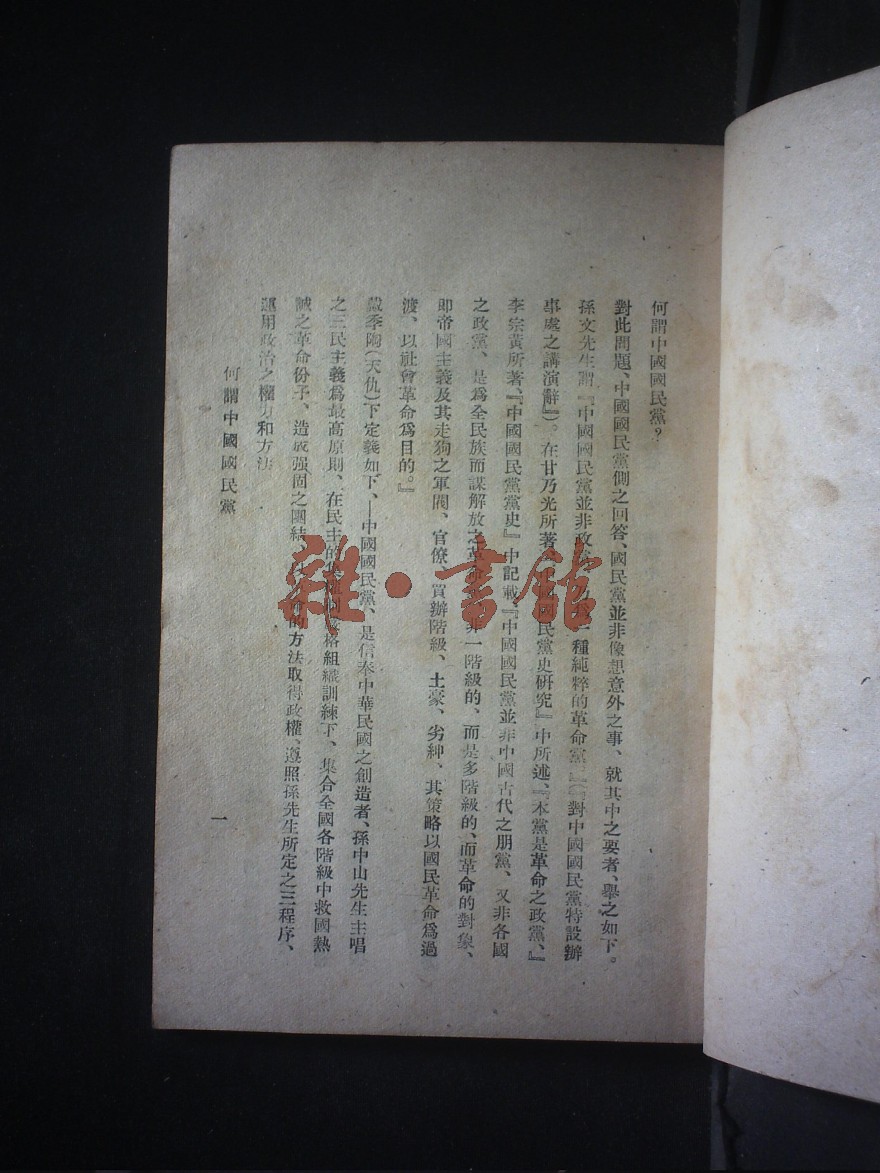 何謂中國國民黨？
對此問題、中國國民黨側之回答、國民黨並非像想意外之事、就其中之要者、舉之如下。
孫文先生謂『中國國民黨並非政 一種純粹的革命黨』(『對中國國民黨特設辦
事處之講演辭』)。在甘乃光所著 國民黨史研究』中所述、『本黨是革命之政黨、』
李宗黃所著、『中國國民黨黨史』中記載、『中國國民黨並非中國古代之朋黨、又非各國
之政黨、是爲全民族而謀解放之革命 非一階級的、而是多階級的、而革命的對象、
即帝國主義及其走狗之軍閥、官僚、買辦階級、土豪、劣紳、其策略以國民革命爲過
渡、以社會革命爲目的。』
戴季陶(天仇)下定義如下、—中國國民黨、是信奉中華民國之創造者、孫中山先生主唱
之三民主義爲最高原則、在民主的 格組織訓練下、集合全國各階級中救國熱
誠之革命份子、造成强固之團結、 的方法取得政權、遵照孫先生所定之三程序、
運用政治之權力和方法
何謂中國國民黨
一
雜·書館